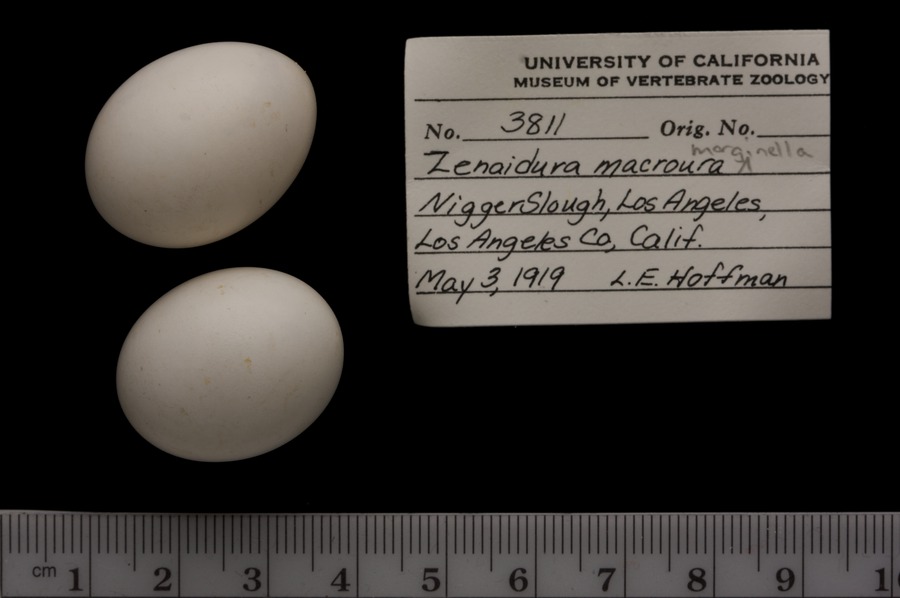 UNIVERSITY OF CALIFORNIA
MUSEUM OF VERTEBRATE ZOOLOGY
No. 3811 Orig. No.
marginella
Zenaidura macroura ^
Nigger Slough, Los Angeles,
Los Angeles Co, Calif.
May 3, 1919 L.E. Hoffman
cm 1 2 3 4 5 6 7 8 9 1